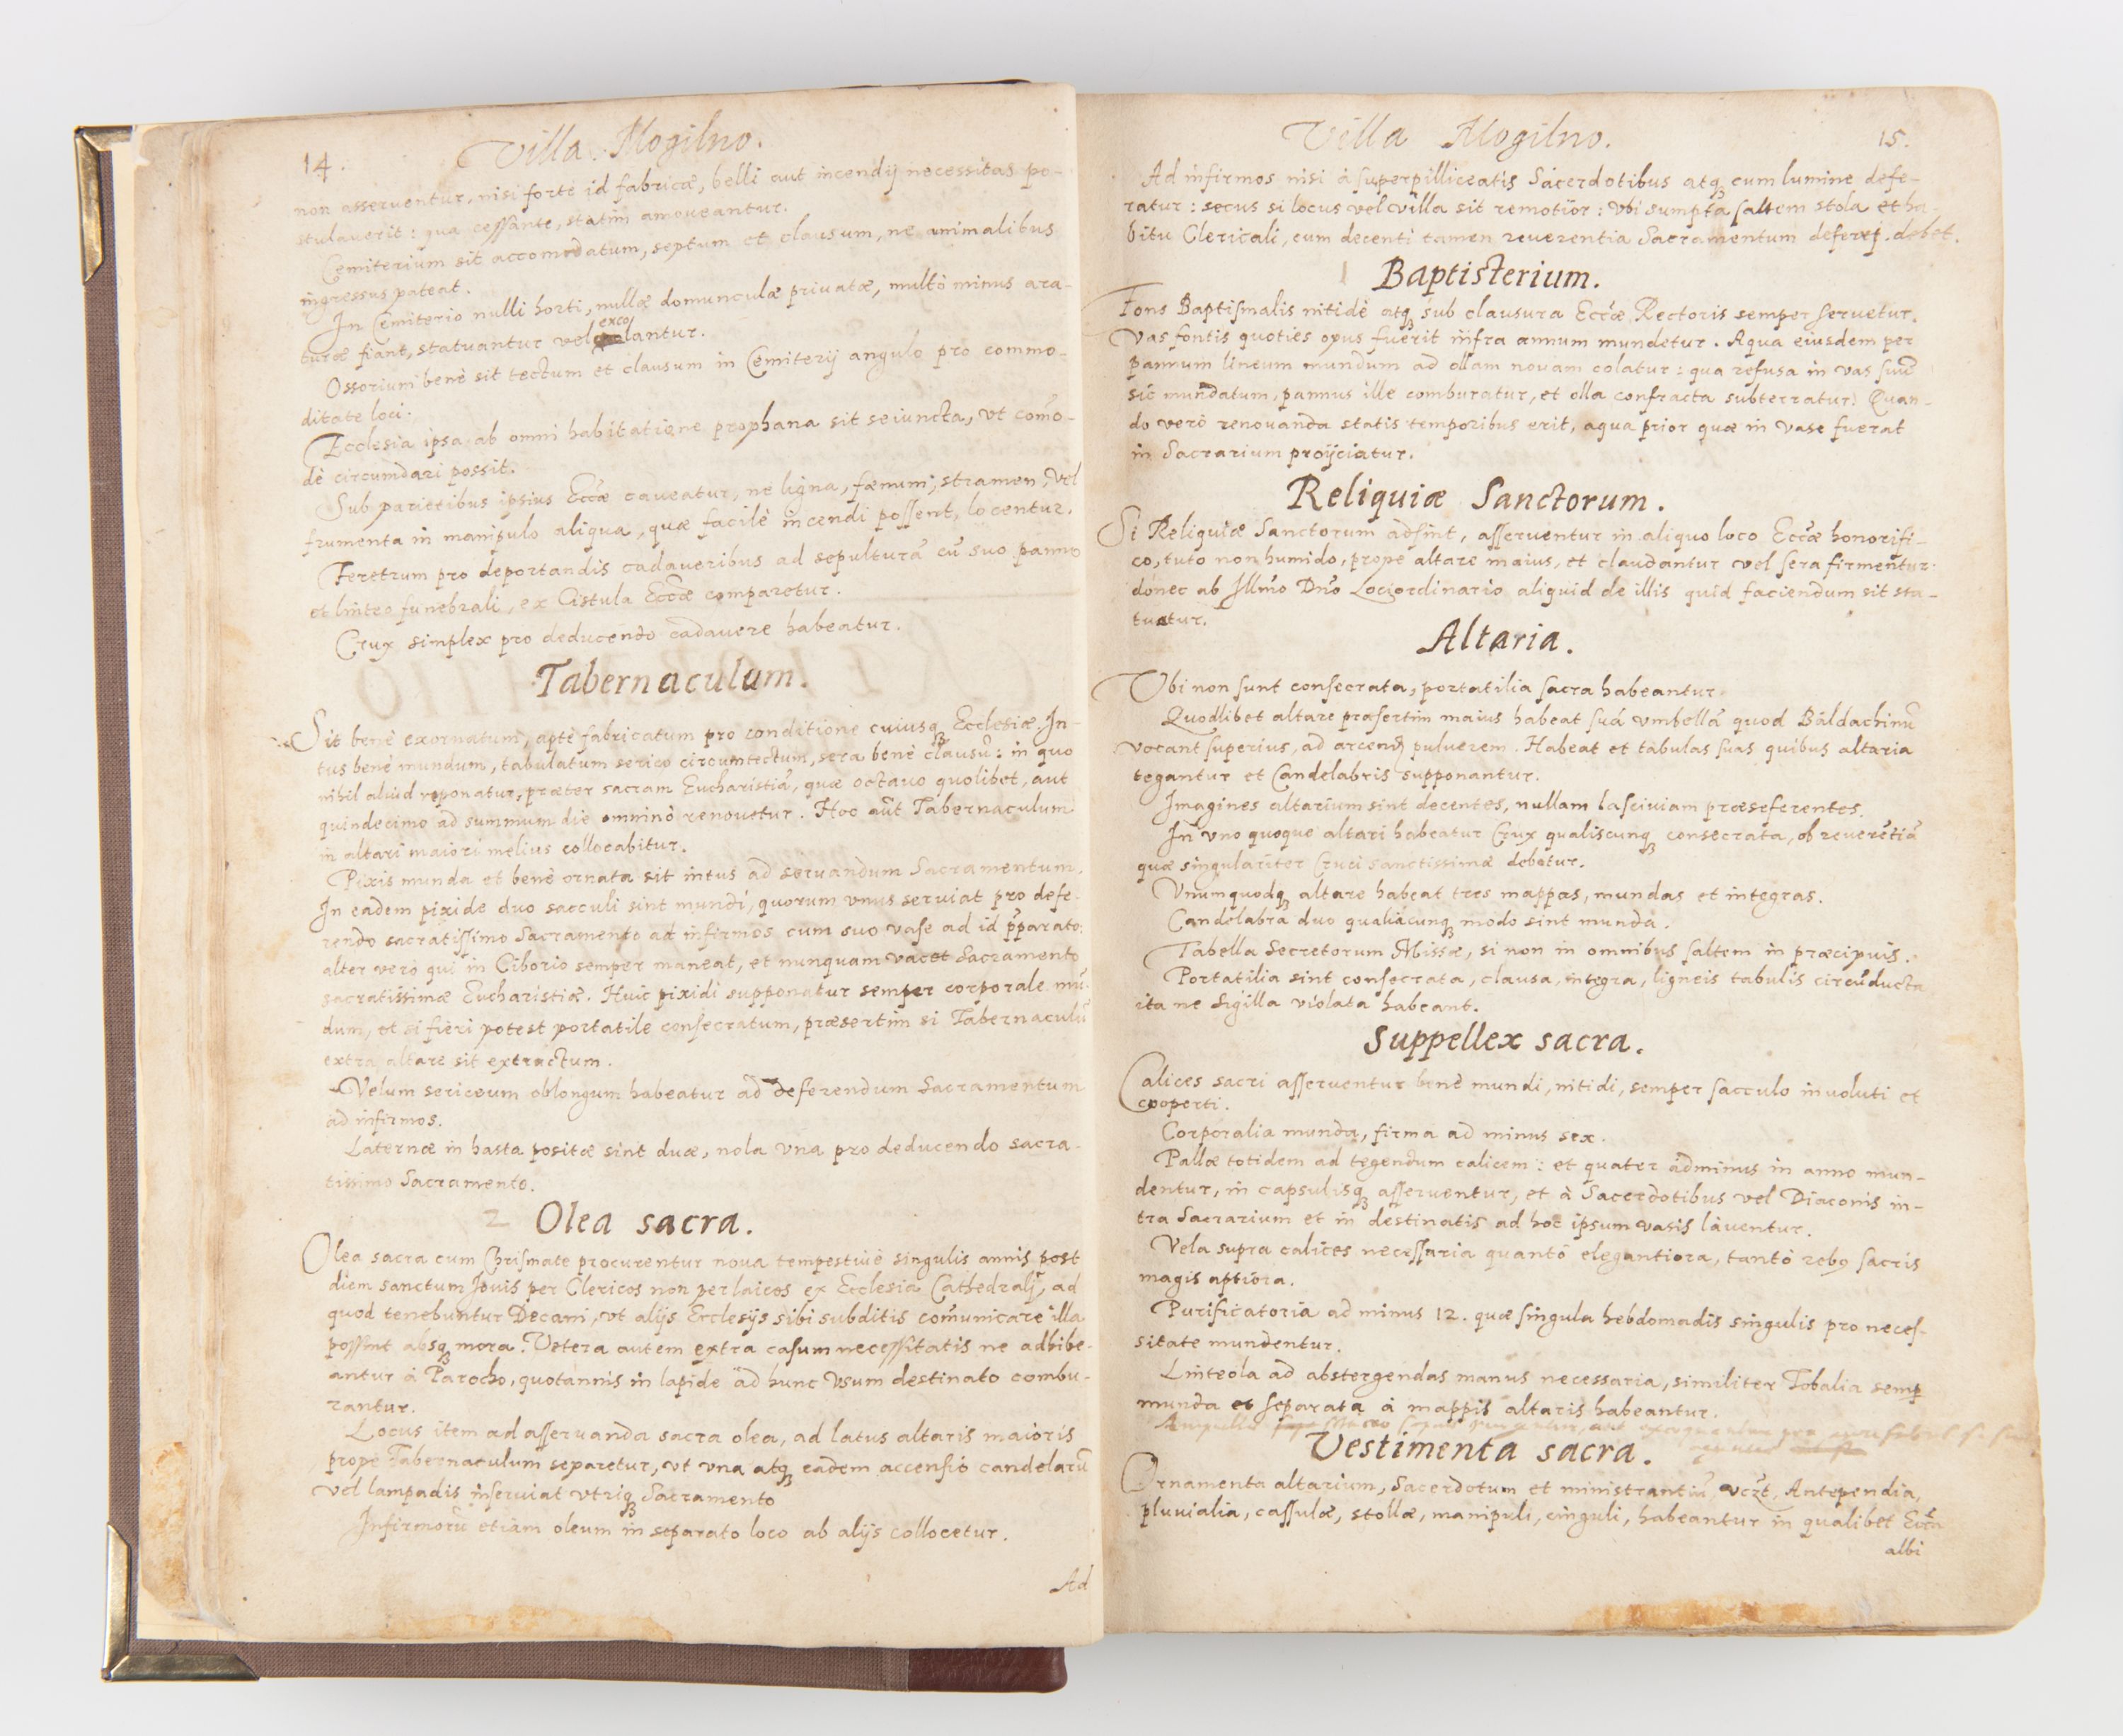 14.
Villa Mogilno.
non asseruentur, nisi forte id fabricæ, belli aut incendij necessitas po-
stulauerit: qua cessante, statim amoueantur.
Cemiterium sit accomodatum, septum et clausum, ne animalibus
ingressus pateat.
In Cemiterio nulli horti, nullæ domunculæ priuatæ, multò minus ara-
turæ fiant, statuantur vel excolantur.
Ossorium benè sit tectum et clausum in Cemiterij angulo pro commo-
ditate loci.
Ecclesia ipsa ab omni habitatione prophana sit seiuncta, vt com̃o-
dè circumdari possit.
Sub parietibus ipsius Eccæ caueatur, ne ligna, fænum, stramen, vel
frumenta in manipulo aliqua, quæ facilè incendi possent, locentur.
Feretrum pro deportandis cadaueribus ad sepulturã cũ suo panno
et linteo funebrali, ex Cistula Eccæ comparetur.
Crux simplex pro deducendo cadauere habeatur.
Tabernaculum.
Sit benè exornatum, aptè fabricatum pro conditione cuiusq; Ecclesiæ. In-
tus benè mundum, tabulatum serico circumtectum, sera benè clausũ: in quo
nihil aliud reponatur, præter sacram Eucharistiã, quæ octauo quolibet, aut
quindecimo ad summum die omninò renouetur. Hoc aũt Tabernaculum
in altari maiori melius collocabitur.
Pixis munda et benè ornata sit intus ad seruandum Sacramentum.
In eadem pixide duo sacculi sint mundi, quorum vnus seruiat pro defe-
rendo sacratissimo Sacramento ad infirmos cum suo vase ad id p̃parato:
alter verò qui in Ciborio semper maneat, et nunquam vacet Sacramento
sacratissimæ Eucharistiæ. Huic pixidi supponatur semper corporale mũ-
dum, et si fieri potest portatile consecratum, præsertim si Tabernaculũ
extra altare sit extructum.
Velum sericeum oblongum habeatur ad deferendum Sacramentum
ad infirmos.
Laternæ in hasta positæ sint duæ, nola vna pro deducendo sacra-
tissimo Sacramento.
2 Olea sacra.
Olea sacra cum Chrismate procurentur noua tempestiuè singulis annis post
diem sanctum Jouis per Clericos non per laicos ex Ecclesia Cathedrali, ad
quod tenebuntur Decani, vt alijs Ecclesijs sibi subditis com̃unicare illa
possint absq; mora. Vetera autem extra casum necessitatis ne adhibe-
antur à Parocho, quotannis in lapide ad hunc vsum destinato combu-
rantur.
Locus item ad asseruanda sacra olea, ad latus altaris maioris
prope Tabernaculum separetur, vt vna atq; eadem accensio candelarũ
vel lampadis inseruiat vtriq; Sacramento
Infirmorũ etiam oleum in separato loco ab alijs collocetur.
Ad
Villa Mogilno.
15.
Ad infirmos nisi à superpilliceatis Sacerdotibus atq; cum lumine defe-
ratur: secus si locus vel villa sit remotior: vbi sumpta saltem stola et ha-
bitu Clericali, cum decenti tamen reuerentia Sacramentum deferri debet.
Baptisterium.
Fons Baptismalis nitidè atq; sub clausura Eccæ Rectoris semper seruetur.
Vas fontis quoties opus fuerit infra annum mundetur. Aqua eiusdem per
pannum lineum mundum ad ollam nouam colatur: qua refusa in vas suũ
sic mundatum, pannus ille comburatur, et olla confracta subterratur. Quan-
do verò renouanda statis temporibus erit, aqua prior quæ in vase fuerat
in Sacrarium proijciatur.
Reliquiæ Sanctorum.
Si Reliquiæ Sanctorum adsint, asseruentur in aliquo loco Eccæ honorifi-
co, tuto non humido, propè altare maius, et claudantur vel sera firmentur:
donec ab Illm̃o Dño Lociordinario aliquid de illis quid faciendum sit sta-
tuatur.
Altaria.
Vbi non sunt consecrata, portatilia sacra habeantur.
Quodlibet altare præsertim maius habeat suã vmbellã quod Baldachinũ
vocant superius, ad arcend puluerem. Habeat et tabulas suas quibus altaria
tegantur et Candelabris supponantur.
Imagines altarium sint decentes, nullam lasciuiam præseferentes.
In vno quoque altari habeatur Crux qualiscunq; consecrata, ob reuerẽtiã
quæ singulariter Cruci sanctissimæ debetur.
Vnumquodq; altare habeat tres mappas, mundas et integras.
Candelabra duo qualiacunq; modo sint munda.
Tabella Secretorum Missæ, si non in omnibus saltem in præcipuis.
Portatilia sint consecrata, clausa, integra, ligneis tabulis circũducta
ita ne Sigilla violata habeant.
Suppellex sacra.
Calices sacri asseruentur benè mundi, nitidi, semper sacculo inuoluti et
cooperti.
Corporalia munda, firma ad minus sex.
Pallæ totidem ad tegendum calicem: et quater adminus in anno mun-
dentur, in capsulisq; asseruentur, et à Sacerdotibus vel Diaconis in-
tra Sacrarium et in destinatis ad hoc ipsum vasis lauentur.
Vela supra calices necessaria quantò elegantiora, tantò rebꝰ sacris
magis aptiora.
Purificatoria ad minus 12. quæ singula hebdomadis singulis pro neces-
sitate mundentur.
Linteola ad abstergendas manus necessaria, similiter Tobalia semp
munda et separata à mappis altaris habeantur.
Vestimenta sacra.
Ornamenta altarium, Sacerdotum et ministrantiũ, vczt, Antependia,
pluuialia, cassulæ, stollæ, manipuli, cinguli, habeantur in qualibet Ecc̃a
albi